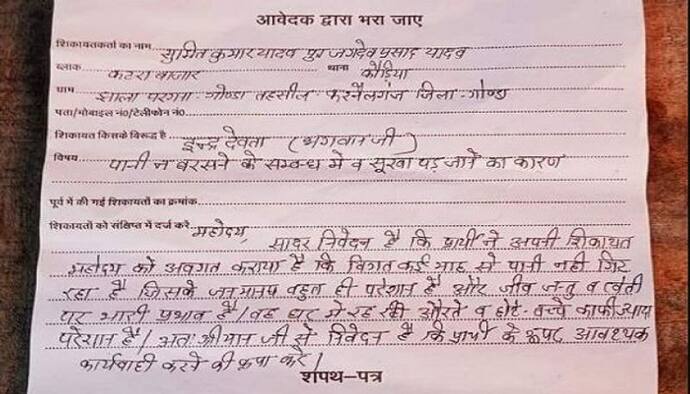 आवेदक द्वारा भरा जाए
शिकायतकर्ता का नाम सुमित कुमार यादव पुत्र जगदेव प्रसाद यादव
ब्लाक कटरा बाजार थाना कौड़िया
ग्राम झाला परगना- गोण्डा तहसील- करनैलगंज जिला- गोण्डा
पता/मोबाइल नं0/टेलीफोन नं0
शिकायत किसके विरूद्ध है इन्द्र देवता (भगवान जी)
विषय पानी न बरसने के सम्बन्ध मे व सूखा पड़ जाने का कारण
पूर्व में की गई शिकायतों का क्रमांक
शिकायतों को संक्षिप्त में दर्ज करें महोदय,
सादर निवेदन है कि प्रार्थी ने अपनी शिकायत
महोदय को अवगत कराया है कि विगत कई माह से पानी नही गिर
रहा है जिसके जनमानष बहुत ही परेशान है और जीव जन्तु व खेती
पर भारी प्रभाव है। घर मे रह रही औरते व छोटे-बच्चे काफी ज्यादा
परेशान है। अतः श्रीमान जी से निवेदन है कि प्रार्थी के ऊपर आवश्यक
कार्यवाही करने की कृपा करें।
शपथ-पत्र